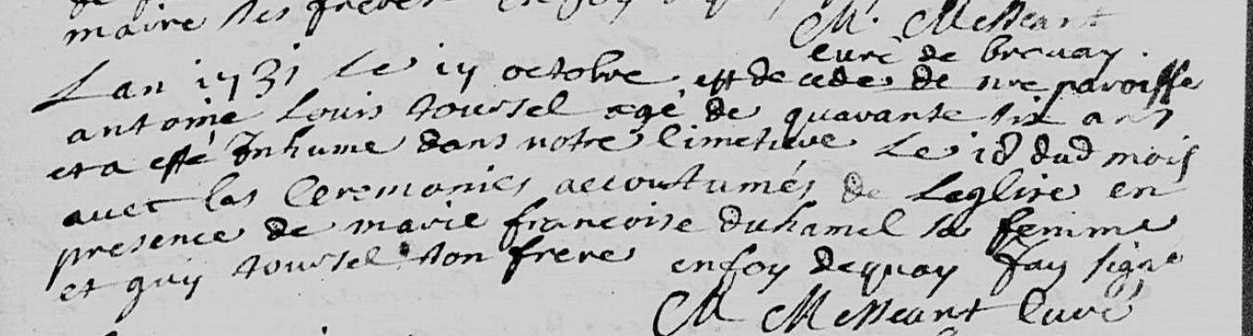 maire ses freres en foy de quoy
M. Messeant
curé de brouay.
Lan 1731 Le 17 octobre est decedes de nre paroisse
antoine Louis toursel agé de quarante six ans
et a esté Inhume dans notre Cimetiere Le 18 dud mois
avec les Ceremonies accoutumés de Leglise en
presence de marie francoise duhamel sa femme
et guy toursel son frere en foy de quoy Jay signe
M Messeant Curé